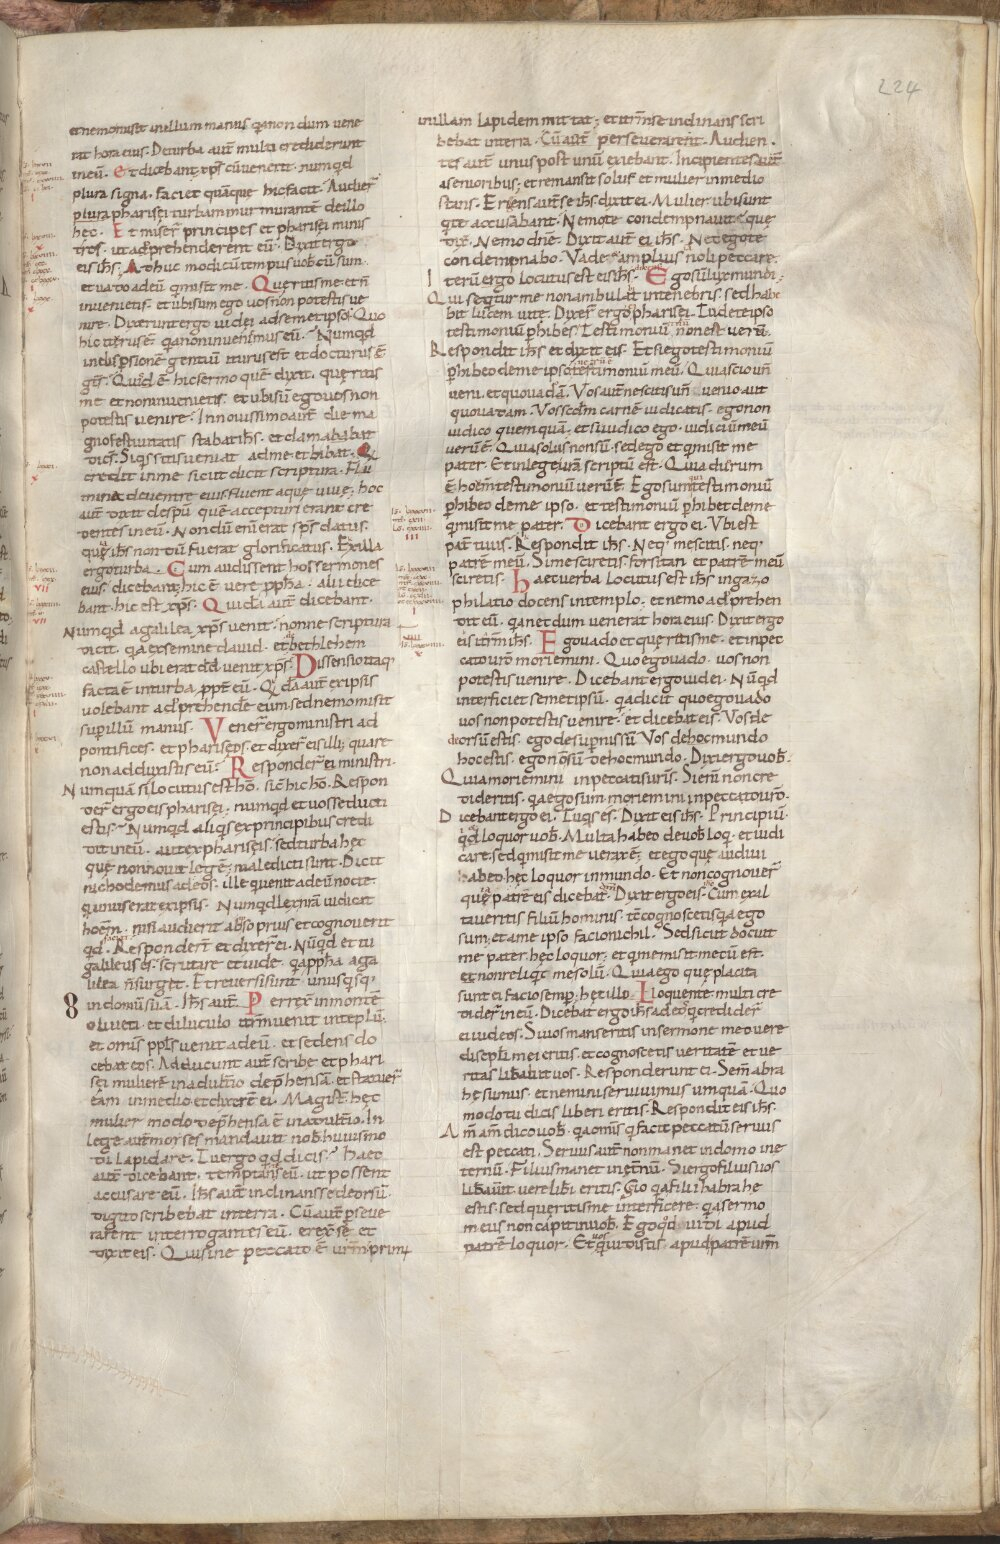 224
et nemo misit in illum manus q̄a non dum vene
rat hora eius. De turba aut̄ multi crediderunt
in eū. Et dicebant. xp̄s cū venerit. numqd
plura signa faciet quā que hic facit. Audier̄
plura pharisei turbam murmurantē de illo
hec. Et miser̄ principes et pharisei minis
tros. ut adprehenderent eū. Dixit ergo
eis ih̄s. Adhuc modicū tempus vob̄ cū sum.
et vado ad eū q̄ misit me. Queritis me et n̄
invenietis. et ubi sum ego vos non potestis ve
nire. Dixerunt ergo iudei ad semetipsos. Quo
hic iturus ē. q̄a non inveniemus eū. Numqd
in dispersionē gentiū iturus est et docturus ē
gentes. Quid ē hic sermo quē dixit. queritis
me et non invenietis. et ubi sū ego vos non
potestis venire. In novissimo aut̄ die ma
gno festivitatis stabat ih̄s. et clamabat
dicens. Siquis sitis veniat ad me et bibat. Qui
credit in me sicut dicit scriptura. Flu
mina de ventre eius fluent aque vive. hoc
aut̄ dixit de sp̄u quē accepturi erant cre
dentes in eū. Non dū enī erat sp̄s datus.
quia ih̄s non dū fuerat glorificatus. Ex illa
ergo turba. Cum audissent hos sermones
eius. dicebant. hic ē vere pph̄a. alii dice
bant. hic est xp̄s. Quidā aut̄ dicebant.
Numquid a galilea xp̄s venit. nonne scriptura
dicit. q̄a ex semine david. et bethlehem
castello ubi erat dd̄ venit xp̄s. Dissensio itaq;
facta ē in turba ppt̄ eū. Quidā aut̄ ex ipsis
volebant adprehendere eum sed nemo misit
sup illum manus. Vener̄ ergo ministri ad
pontifices. et phariseos. et dixer̄ eis illi. quare
non adduxistis eum. Responder̄ ei ministri.
Numquā si locutus est hō. sic̄ hic hō. Respon
der̄ ergo eis pharisei. numqd et vos seducti
estis. Numqd aliqs ex principibus credi
dit in eū. aut ex phariseis. sed turba hęc
quę non novit legē. maledicti sunt. Dicit
nichodemus ad eos. ille qui venit ad eū nocte.
qui unus erat ex ipsis. Numqd lex n̄ra iudicat
hoēm. nisi audierit ab ipso prius et cognoverit
qd faciat. Responder̄t et dixer̄t ei. Nūqd et tu
galileus es. scrutare et vide. q̄a pph̄a a ga
lilea n̄ surget. Et reversi sunt unusqsq;
8 in domū suā. Ih̄s aut̄ Perrexit in montē
oliveti. et diluculo itrm̄ venit in teplū.
et omīs ppl̄s venit ad eū. et sedens do
cebat eos. Adducunt aut̄ scribe et phari
sei mulierē in adult̄io dep̄hensā. et statuer̄
eam in medio et dixer̄t ei. Magist̄ hęc
mulier modo dep̄hensa ē in adult̄io. In
lege aut̄ moyses mandavit nob̄ huiusmo
di lapidare. Tu ergo qd dicis. Haec
aut̄ dicebant. temptantes eū. ut possent
accusare eū. Ih̄s aut̄ inclinans se deorsū.
digito scribebat in terra. Cū aut̄ p̄seve
rarent interrogantes eū. erex̄ se. et
dixit eis. Qui sine peccato ē v̄rm̄ primus
in illam lapidem mittat. et iterū se inclinans scri
bebat in terra. Cū aut̄ perseverarent. Audien
tes aut̄ unus post unū exiebant. Incipientes
a senioribus. et remansit solus et mulier in medio
stans. Erigens aut̄ se ih̄s dixit ei. Mulier ubi sunt
qui te accusabant. Nemo te condempnavit. que
dix̄. Nemo dn̄e. Dixit aut̄ ei ih̄s. Nec ego te
condempnabo. Vade et amplius noli peccare.
Iterū ergo locutus est eis ih̄s. Ego sū lux mundi.
Qui seqitur me non ambulat in tenebris. sed habe
bit lucem vite. Dixer̄ ergo pharisei. Tu de te ipso
testimoniū phibes. Testimoniū non est verū.
Respondit ih̄s et dixit eis. Et si ego testimoniū
phibeo de me ipso testimoniū meū. Quia scio un̄
veni. et quo vadā. Vos aut̄ nescitis un̄ venio aut
quo vadam. Vos scd̄m carnē iudicatis. ego non
iudico quemquā. et si iudico ego. iudiciū meū
verū ē. Quia solus non sū. sed ego et q̄ misit me
pater. Et in lege vr̄a scriptū est. Quia duorum
hoēm testimoniū verū ē. Ego sum testimoniū
phibeo de me ipso. et testimoniū phibet de me
q̄ misit me pater. Dicebant ergo ei. Ubi est
pat̄ tuus. Respondit ih̄s. Neq; me scitis. neq;
patrē meū. Si me sciretis. forsitan et patrē meū
sciretis. Haec verba locutus est ih̄s in gazo
philatio docens in templo. et nemo adprehen
dit eū. q̄a nec dum venerat hora eius. Dixit ergo
eis itrm̄ ih̄s. Ego vado et queritis me. et in pec
cato vr̄o moriemini. Quo ego vado. vos non
potestis venire. Dicebant ergo iudei. Nūqd
interficiet semetipsū. q̄a dicit quo ego vado
vos non potestis venire. et dicebat eis. Vos de
deorsū estis. ego de supnis sū. Vos de hoc mundo
hoc estis. ego non sū de hoc mundo. Dixi ergo vob̄.
Quia moriemini in peccatis vr̄is. Si enī non cre
dideritis. q̄a ego sum. moriemini in peccato vr̄o.
Dicebant ergo ei. Tu qs es. Dixit eis ih̄s. Principiū
qd loquor vob̄. Multa habeo de vob̄ loq. et iudi
care. sed q̄ misit me verax ē. et ego quę audivi
ab eo hęc loquor in mundo. Et non cognover̄
quia patrē eis dicebat. Dixit ergo eis. Cum exal
taveritis filiū hominis. t̄c cognoscetis q̄a ego
sum. et a me ipso facio nichil. Sed sicut docuit
me pater hęc loquor. et q̄ me misit mecū est.
et non reliqt me solū. Quia ego quę placita
sunt ei facio semp. hęc illo Loquente. multi cre
dider̄ in eū. Dicebat ergo ih̄s ad eos q̄ credider̄
ei iudeos. Si vos manseritis in sermone meo vere
discipl̄i mei eritis. et cognoscetis veritatē et ve
ritas lib̄abit vos. Responderunt ei. Sem̄ abra
hę sumus. et nemini servivimus umquā. Quo
modo tu dicis liberi eritis. Respondit eis ih̄s.
Am̄ am̄ dico vob̄. q̄a om̄is q̄ facit peccatū servus
est peccati. Servus aut̄ non manet in domo in e
ternū. Filius manet in et̄nū. Si ergo filius vos
lib̄avit. vere lib̄i eritis. Scio q̄a filii habrahe
estis. sed queritis me interficere. q̄a sermo
meus non capit in vob̄. Ego qd vidi apud
patrē loquor. Et vos q̄ vidistis apud patrē vr̄m